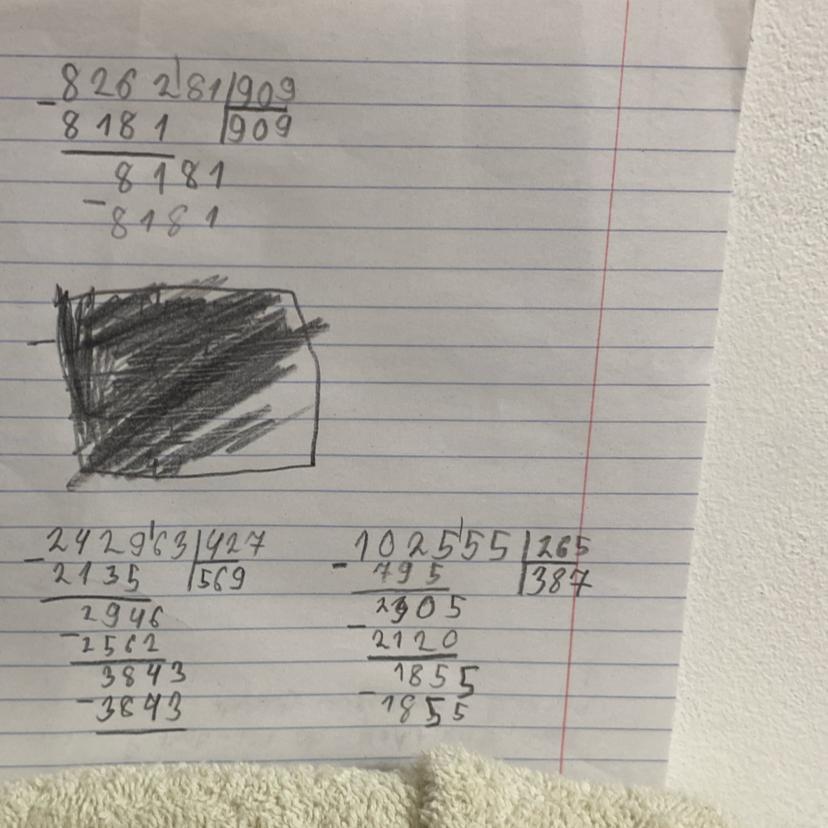 826281 909
- 8181 909
8181
- 8181
- 242963 427
2135 569
2946
- 2562
3843
- 3843
102555 265
- 795 387
2305
- 2120
1855
- 1855